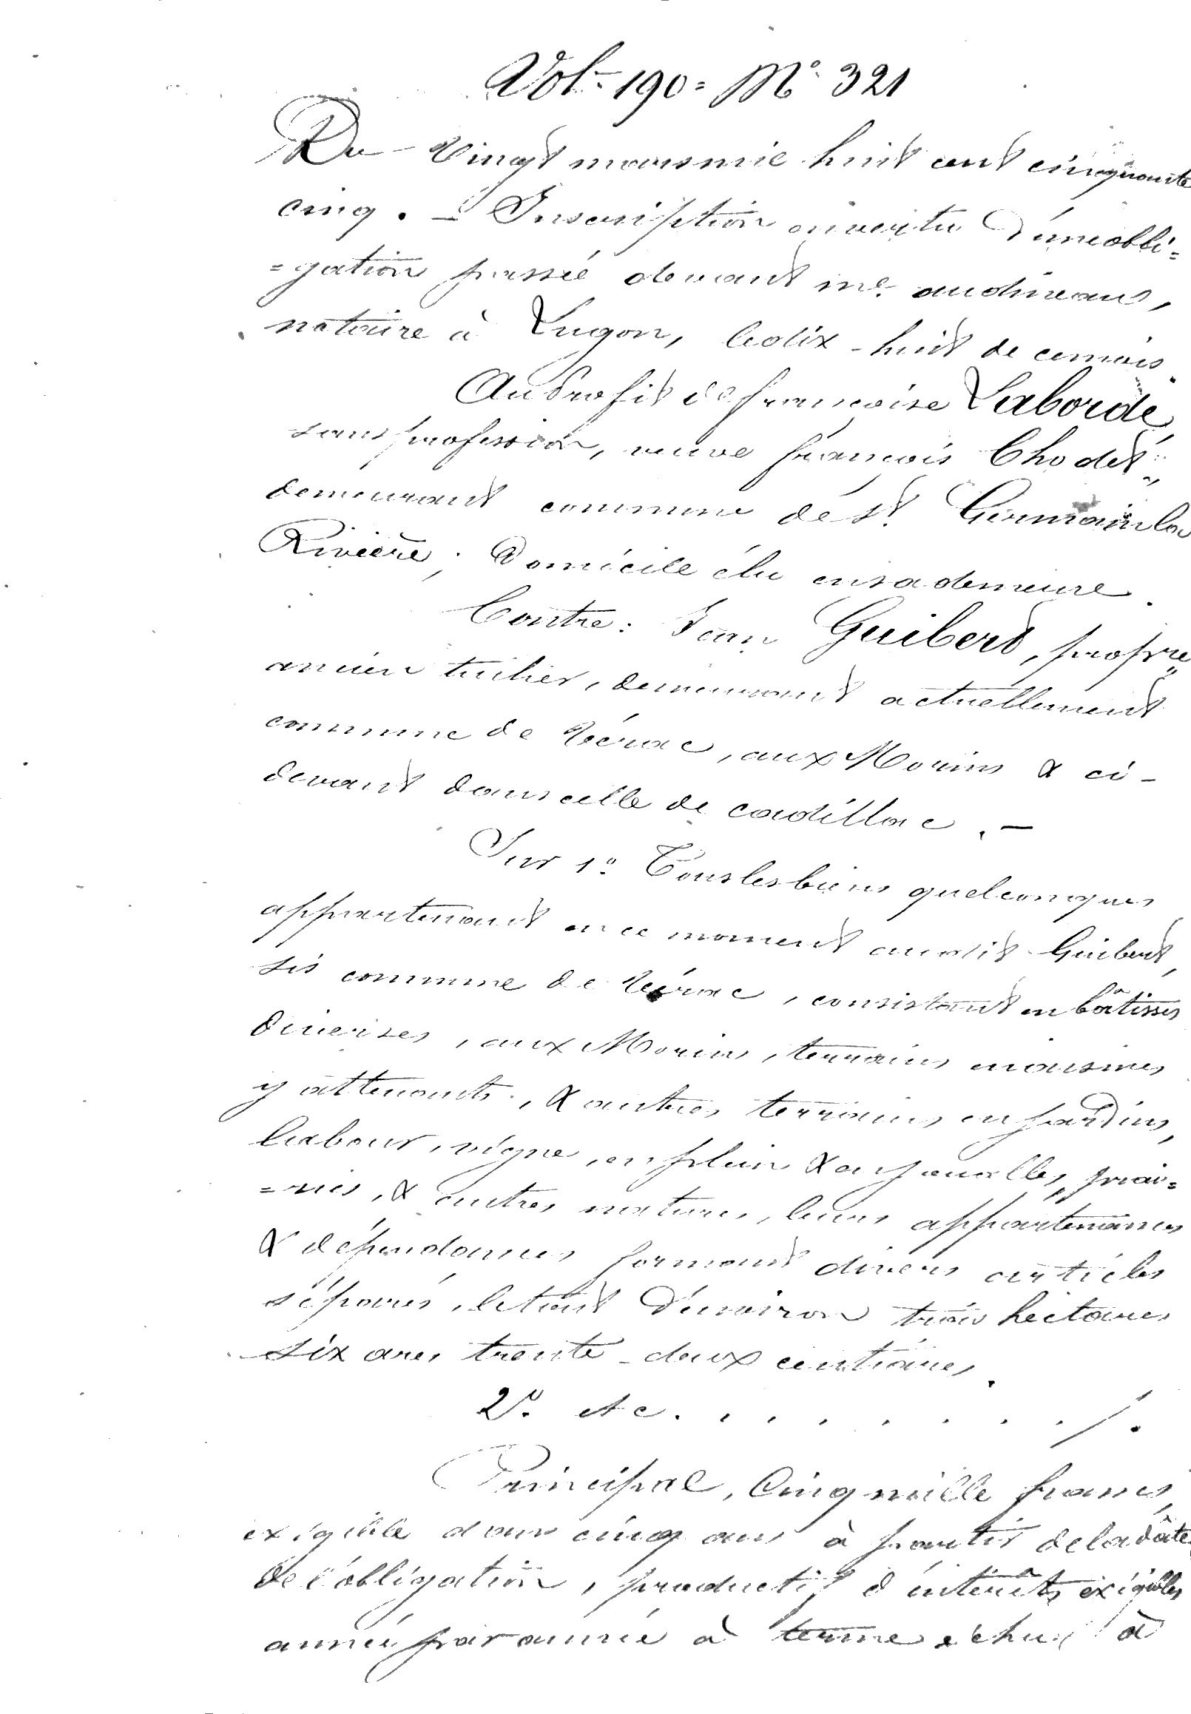 Vol. 190 = N° 321
Du Vingt mars mil huit cent cinquante
cinq. — Inscription en vertu d'une obli=
=gation passée devant me. audineau,
notaire à Lugon, le dix-huit de ce mois.
Au Profit de françoise Laborde,
sans profession, veuve françois Chodet,
demeurant commune de st. Germain la
Rivière ; Domicile élu en sa demeure.
Contre : Jean Guibert, propre.
ancien tuilier, demeurant actuellement
commune de Vérac, aux Morins & ci-
devant dans celle de cadillac. —
Sur 1° Tous les biens quelconques
appartenant en ce moment audit Guibert,
sis commune de Vérac, consistant en bâtisses
diverses, aux Morins, terrains
y attenants, & autres terrains en jardins,
labour, vigne, en plein & en joualles, prai=
=ries, & autres natures, leurs appartenances
& dépendances formant divers articles
séparés, le tout d'environ trois hectares
six ares trente-deux centiares.
2° etc. . . . . . . . /.
Principal, Cinq mille francs,
exigible dans cinq ans à partir de la dâte
de l'obligation, productif d'intérêts exigibles
année par année à terme échu à